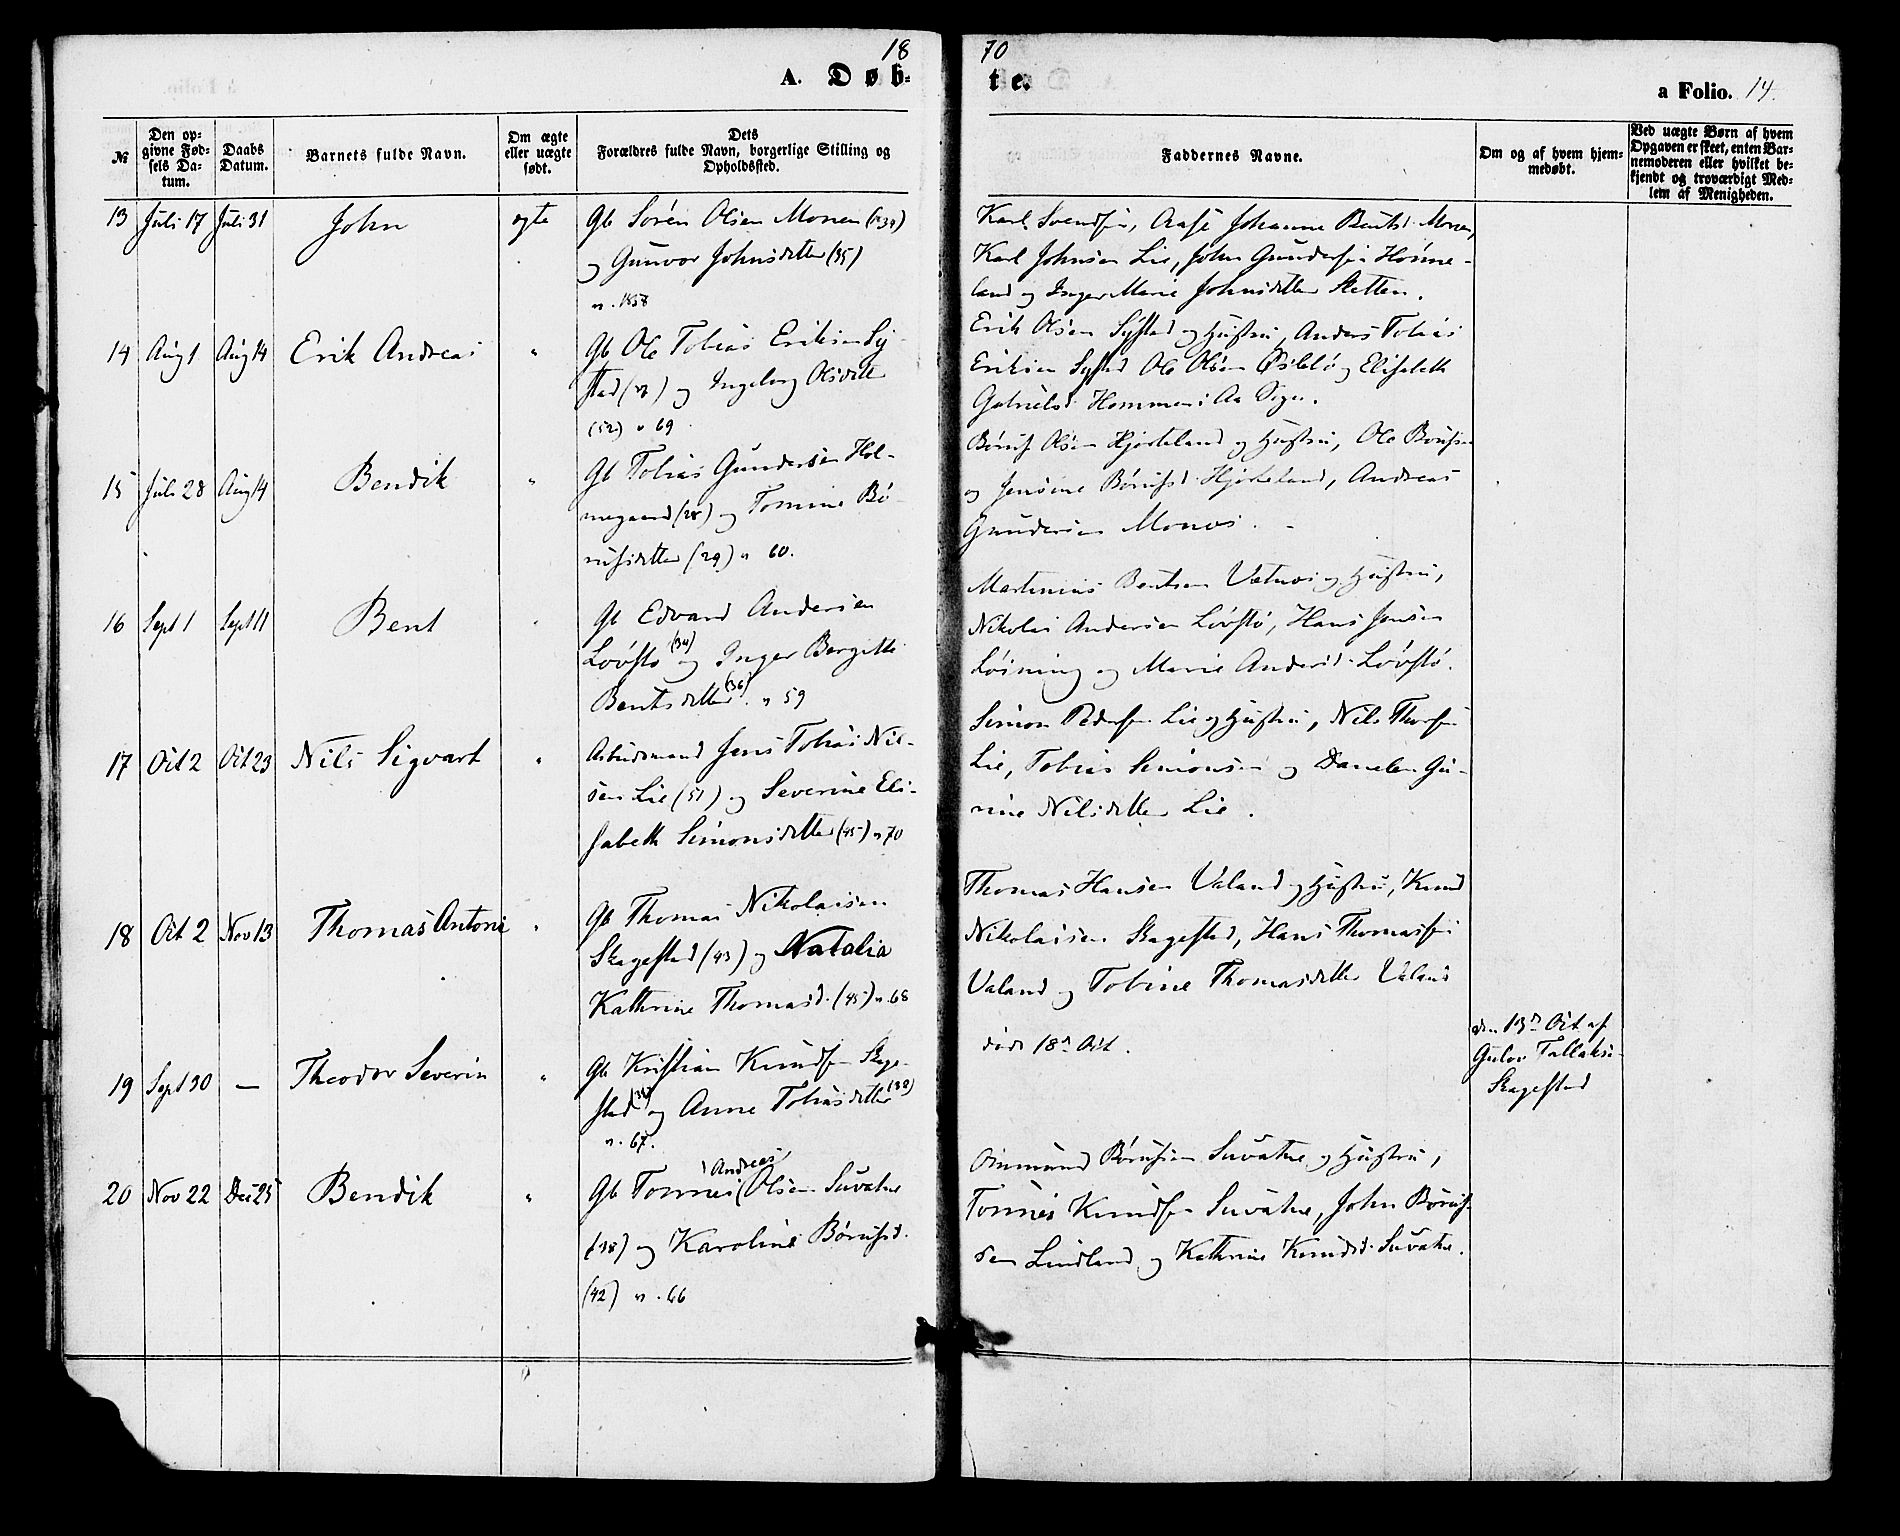 18 70
A. Døb-
te.
a Folio. 14.
№
Den op-
givne Fød-
sels Da-
tum.
Daabs
Datum.
Barnets fulde Navn.
Om ægte
eller uægte
født.
Dets
Forældres fulde Navn, borgerlige Stilling og
Opholdssted.
Faddernes Navne.
Om og af hvem hjem-
medøbt.
Ved uægte Børn af hvem
Opgaven er skeet, enten Bar-
nemoderen eller hvilket be-
kjendt og troværdigt Med-
lem af Menigheden.
13 Juli 17 Juli 31 John ægte
Gb Sørén Olsen Monen (34)
og Gunvor Johnsdatter (35)
v. 1858
Karl Svendsen, Aase Johanne Bents. Monen,
Karl Johnsen Lie, John Gundersen Hønne-
land og Inger Marie Johnsdatter Sletten.
14 Aug 1 Aug 14 Erik Andreas "
Gb Ole Tobias Eriksen Sy-
stad og Ingeborg Olsdatter
(52) v 69
Erik Olsen Systad og Hustru, Anders Tobias
Eriksen Systad Ole Olsen og Elisabeth
Gabrielsd. Hommen i Aa Sogn.
15 Juli 28 Aug 14 Bendik "
Gb Tobias Gundersen Hol-
megaard (28) og Tomine Bø-
rufsdatter (29) v 60.
Børuf Olsen Hjorteland og Hustru, Ole Børufsen
og Jensine Børufsd. Hjorteland, Andreas
Gundersen Monoi.
16 Sept 1 Sept 11 Bent
Gb Edvard Andersen
Løvstø (34) og Inger Bergitte
Bentsdatter (36). v 59
Martinius Bentsen Vatnoi og Hustru,
Nikolai Andersen Løvstø, Hans Jensen
Løining og Marie Andersd. Løvstø.
17 Oct 2 Oct 23 Nils Sigvart "
Arbeidsmand Jens Tobias Nil-
sen Lie (51) og Severine Eli-
sabeth Simonsdatter (45) v 70
Simon Pedersen Lie og Hustru, Nils Thorsen
Lie, Tobias Simonsen og Danelen Gu-
rine Nilsdatter Lie.
18 Oct 2 Nov 13 Thomas Antoni "
Gb Thomas Nikolaisen
Skagestad (43) og Natalia
Kathrine Thomasd. (45) v. 68
Thomas Hansen Valand og Hustru, Knud
Nikolaisen Skagestad, Hans Thomassen
Valand og Tobine Thomasdatter Valand
19 Sept 30 — Theodor Severin "
Gb Kristian Knudsen Skage-
stad og Anne Tobiasdatter (38)
v. 67.
død 18de Oct.
den 13de Oct. af
Gulov Tallaks.
Skagestad
20 Nov 22 Dec 25 Bendik "
Gb Tønnes (Andreas) Olsen Suvatne
(38) og Karoline Børufsd.
(42) v. 66
Ommund Børufsen Suvatne og Hustru,
Tønnes Knudsen Suvatne, John Børuf-
sen Lindland og Kathrine Knudsd. Suvatne.